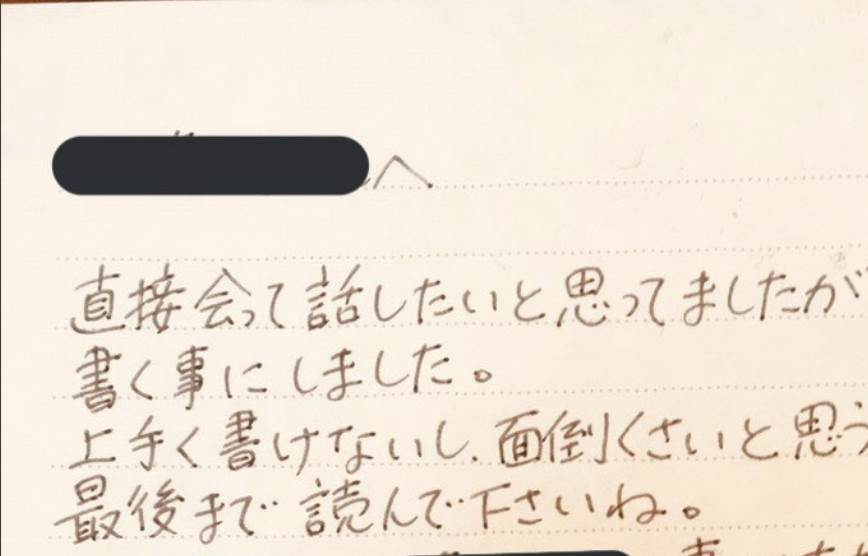 へ
直接会って話したいと思ってましたが
書く事にしました。
上手く書けないし、面倒くさいと思う
最後まで読んで下さいね。